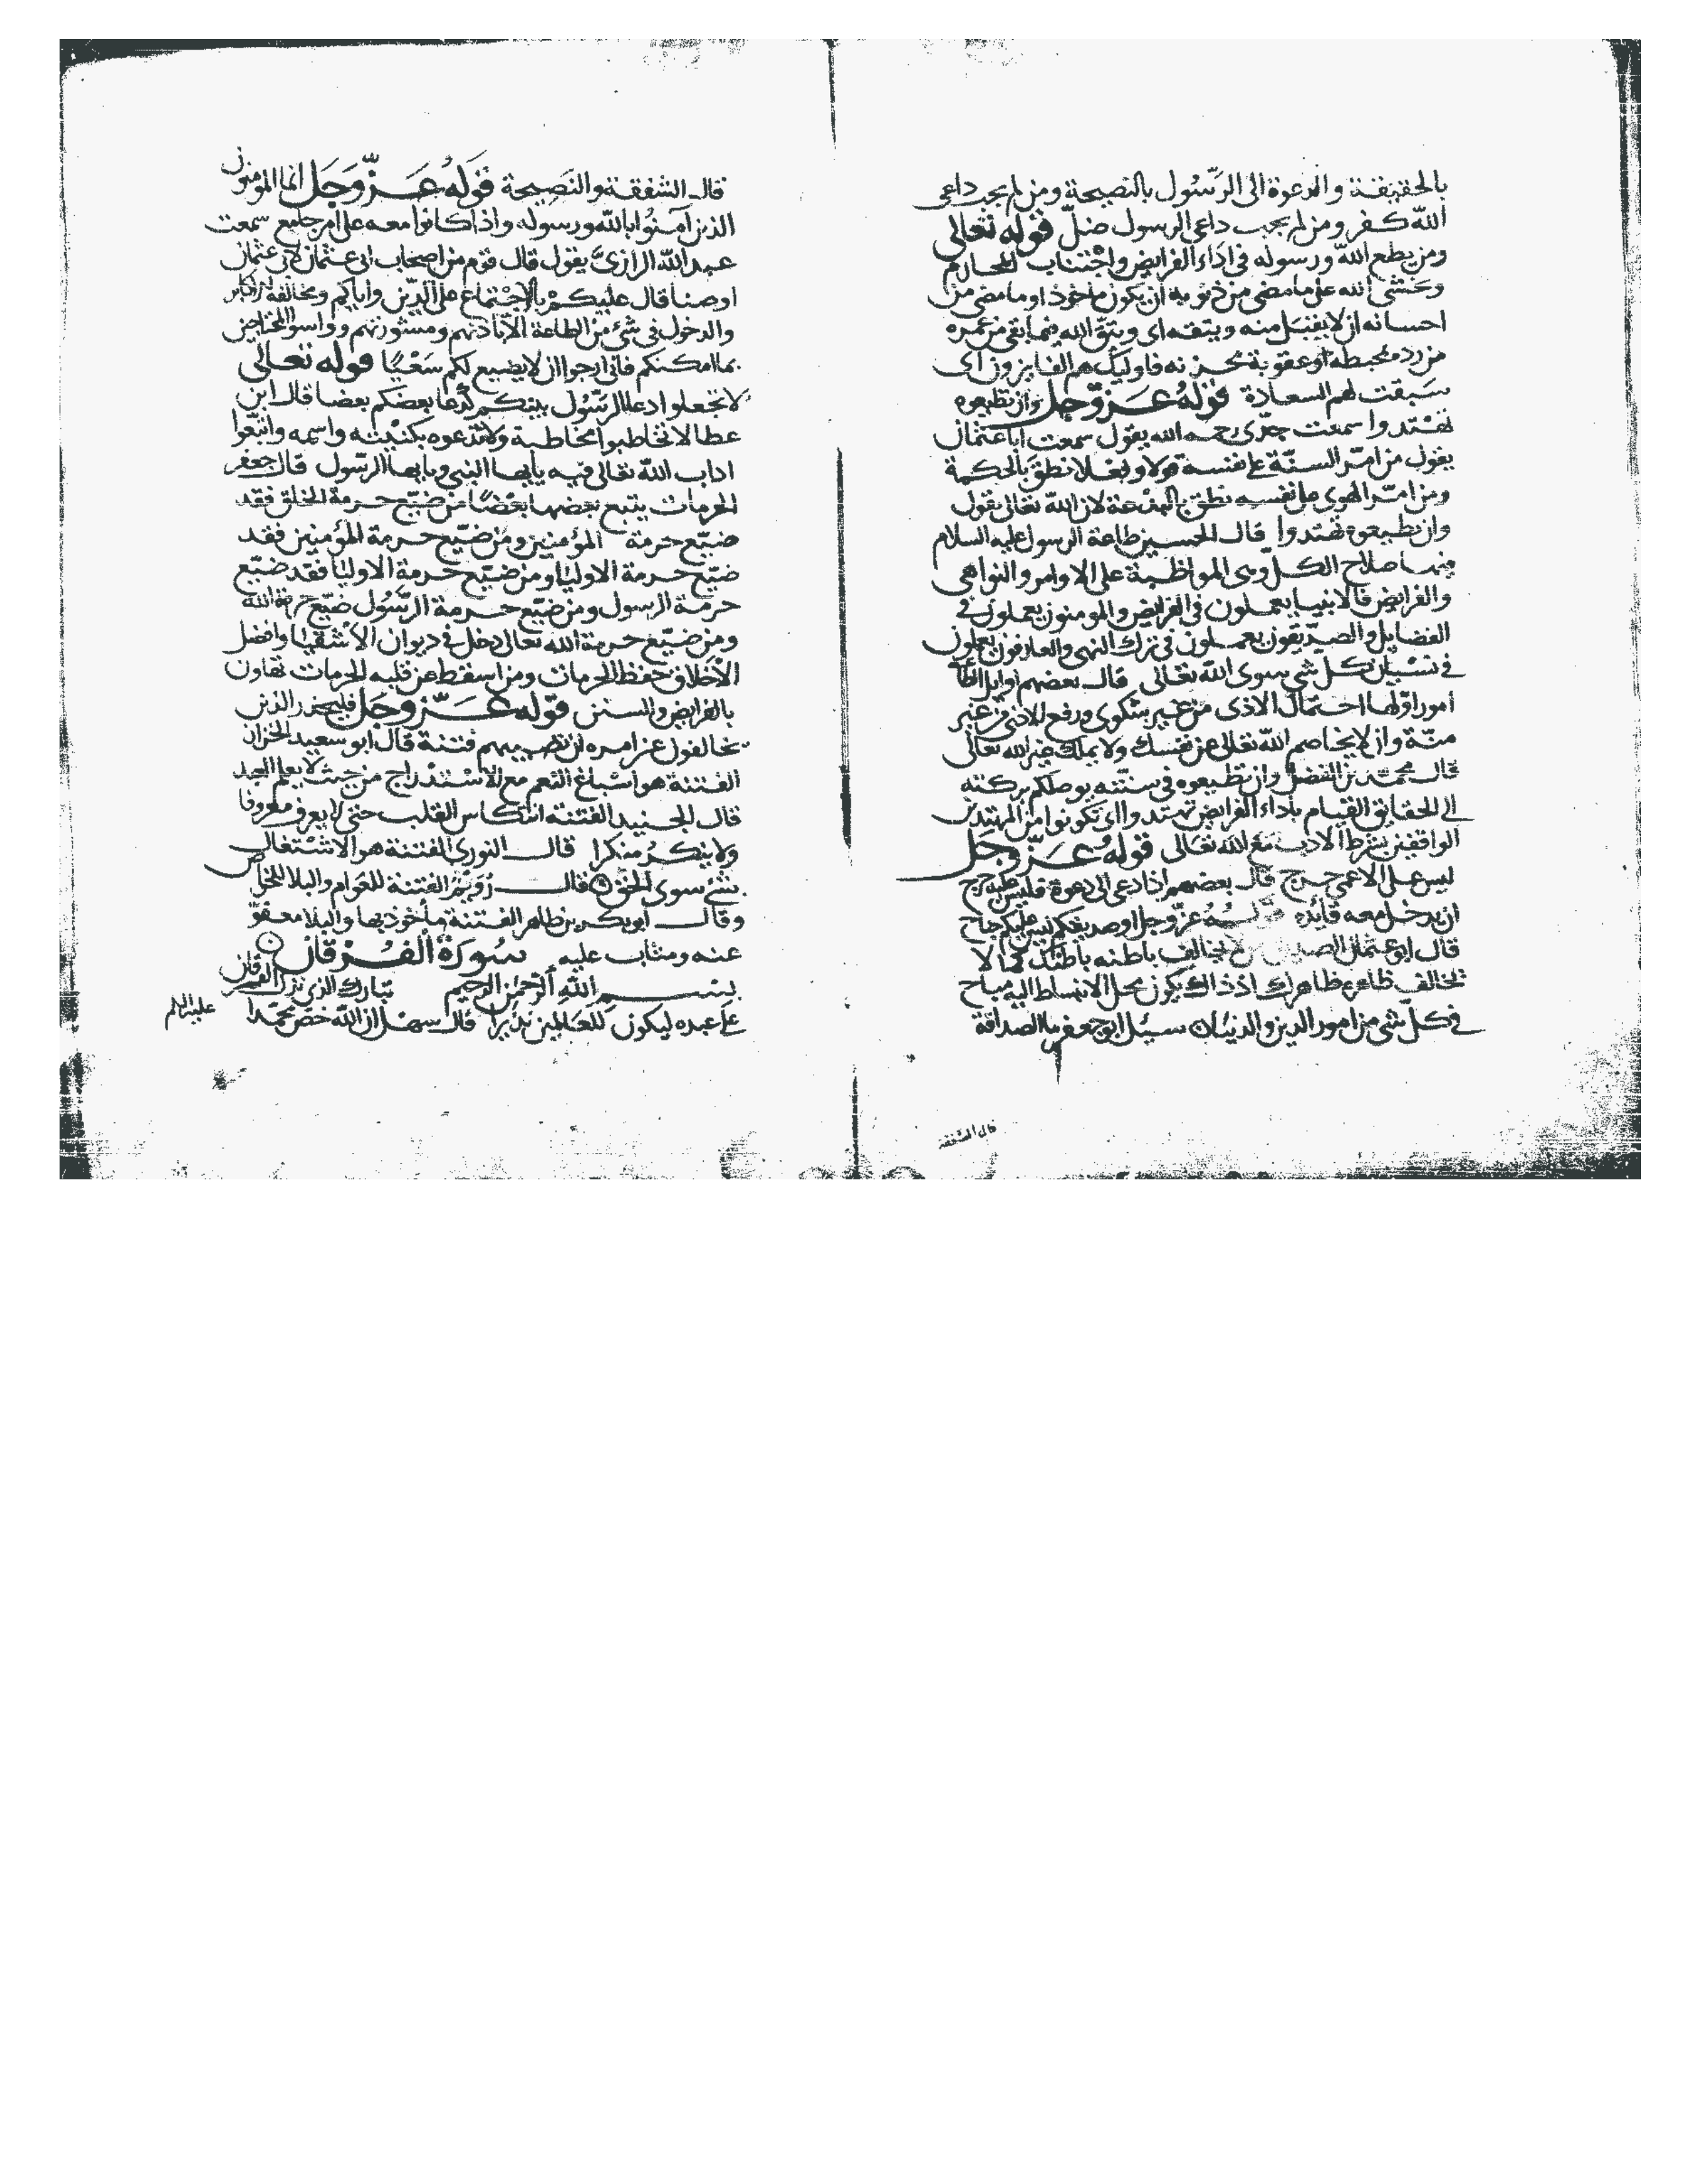 بالحقيقة والدعوة الى الرَّسُول بالنصيحة ومن لم يجب داعى
الله كفر ومن لم يجب داعى الرسول ضلّ قوله تعالى
ومن يطع الله ورسوله فى اداء الفرايض واجتناب المحارم
ويخشى الله على ما مضى من ذنوبه ان يكون ماخوذا وما مضى من
احسانه ان لا يقبل منه ويتقه اى ويتق الله فيما بقى من عمره
من رد محبطه او عقوبة تحزنه فاوليك هم الفايزون اى
سبقت لهم السعادة قوله عزّ وجل وان تطيعوه
تهتدوا سمعت جدّى رحمه الله يقول سمعت ابا عثمان
يقول من امّر السنّة على نفسه قولا وفعلا نطق بالحكمة
ومن امّر الهوى على نفسه نطق بالبدعة لان الله تعالى يقول
وان تطيعوه تهتدوا قال الحسين طاعة الرسول عليه السلام
فيها صلاح الكل وهى المواظبة على الاوامر والنواهى
والفرايض فالانبيا يعملون فى الفرايض والمومنون يعملون فى
الفضايل والصدّيقون يعملون فى ترك النهى والعارفون يعملون
فى كل شى سوى الله تعالى قال بعضهم اوايل
امور اوّلها احتمال الاذى من غير شكوى ورفع الاذى من غير
منّة وان لا يخاصم الله تعالى عن نفسك ولا يملك غير الله تعالى
قال محمّد بن الفضل وان تطيعوه فى سنّته يوصلكم بركته
الى الحقايق القيام باداء الفرايض تهتدوا اى تكونوا من المهتدين
الواقفين بشرط الادب مع الله تعالى قوله عزّ وجل
ليس على الاعمى حرج قال بعضهم اذا دعى الى دعوة فليس عليه حرج
ان يدخل معه قايده قوله عزّ وجل او صديقكم ليس عليكم جناح
قال ابو عثمان الصديق من لا يخالف باطنه باطنك كما لا
يخالف ظاهره ظاهرك اذ ذاك يكون محل الانبساط اليه مباح
فى كلّ شى من امور الدين والدنيا سيل ابو جعفر ما الصداقة
قال الشفقة
قال الشفقة والنصيحة قَوله عَزّ وَجَل انما المؤمنون
الذين آمنوا بالله ورسوله واذا كانوا معه على امر جامع سمعت
عبد الله الرازى يقول قال قوم من اصحاب ابى عثمان لابى عثمان
اوصنا قال عليكم بالاجتماع على الدّين واياكم ومخالفة الاكابر
والدخول فى شئ من الطاعة الا باذنهم ومشورتهم وواسوا المحتاجين
بما امكنكم فانى ارجوا ان لا يضيع لكم سَعْيًا قوله تعالى
لا تجعلوا دعا الرّسُول بينكم كدعا بعضكم بعضا قال ابن
عطا لا تخاطبوه مخاطبة ولا تدعوه بكنيته واسمه واتبعوا
اداب الله تعالى فيه يا يها النبى ويا يها الرسول قال جعفر
الحرمات يتبع بعضها بعضًا من ضيّع حرمة الخلق فقد
ضيّع حرمة المؤمنين ومن ضيّع حرمة المؤمنين فقد
ضيّع حرمة الاوليا ومن ضيّع حرمة الاوليا فقد ضيّع
حرمة الرسول ومن ضيّع حرمة الرّسُول ضيّع حرمة الله
ومن ضيّع حرمة الله تعالى دخل فى ديوان الاشقيا وافضل
الاخلاق حفظ الحرمات ومن اسقط عن قلبه الحرمات تهاون
بالفرايض والسنن قوله عَزّ وجَل فليحذر الذين
يخالفون عن امره ان تصيبهم فتنة قال ابو سعيد الخزاز
الفتنة هو اسباغ النعم مع الاستدراج من حيث لا يعلم العبد
قال الجنيد الفتنة انتكاس القلب حتى لا يعرف معروفا
ولا ينكر منكرا قال النورى الفتنة هو الاشتغال
بشئ سوى الحق قال رُوَيْمُ الفتنة للعوام والبلا للخواص
وقال ابو بكر بن طاهر الفتنة مأخوذ بها والبلا معفوّ
عنه ومثاب عليه سُورَة الفُرْقان
بسم الله الرّحمن الرحيم تبارك الذى نزل الفرقان
على عبده ليكون للعالمين نذيرا قال سهل ان الله خص محمّدا
عليه السلم